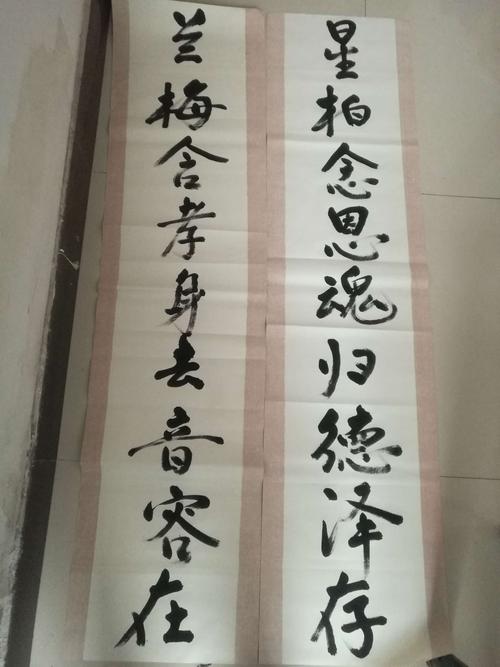 星柏念恩魂归德泽存
兰梅含孝身去音容在